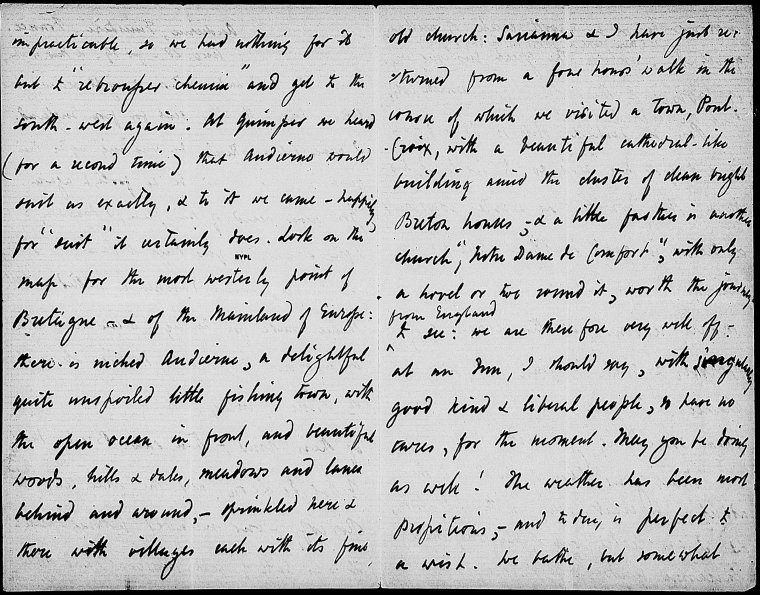 impracticable, so we had nothing for it
but to "rebrousser chemin" and get to the
south-west again. At Quimper we heard
(for a second time) that Audierne would
suit us exactly, & to it we came - happily,
for "suit" it certainly does. Look on the
NYPL
map for the most westerly point of
Bretagne - & of the Mainland of Europe:
there is niched Audierne, a delightful
quite unspoiled little fishing town, with
the open ocean in front, and beautiful
woods, hills & dales, meadows and lanes
behind and around, - sprinkled here &
there with villages each with its fine
old church: Sarianna & I have just re-
-turned from a four hours' walk in the
course of which we visited a town, Pont-
-Croix, with a beautiful cathedral-like
building amid the cluster of clean bright
Breton houses, - & a little farther is another
church, "Notre Dame de Comfort", with only
a hovel or two round it, worth the journey
from England
to see: we are therefore very well off -
at an Inn, I should say, with singularly
good kind & liberal people, so have no
cares, for the moment. May you be doing
as well! The weather has been most
propitious, - and to-day is perfect to
a wish. We bathe, but somewhat